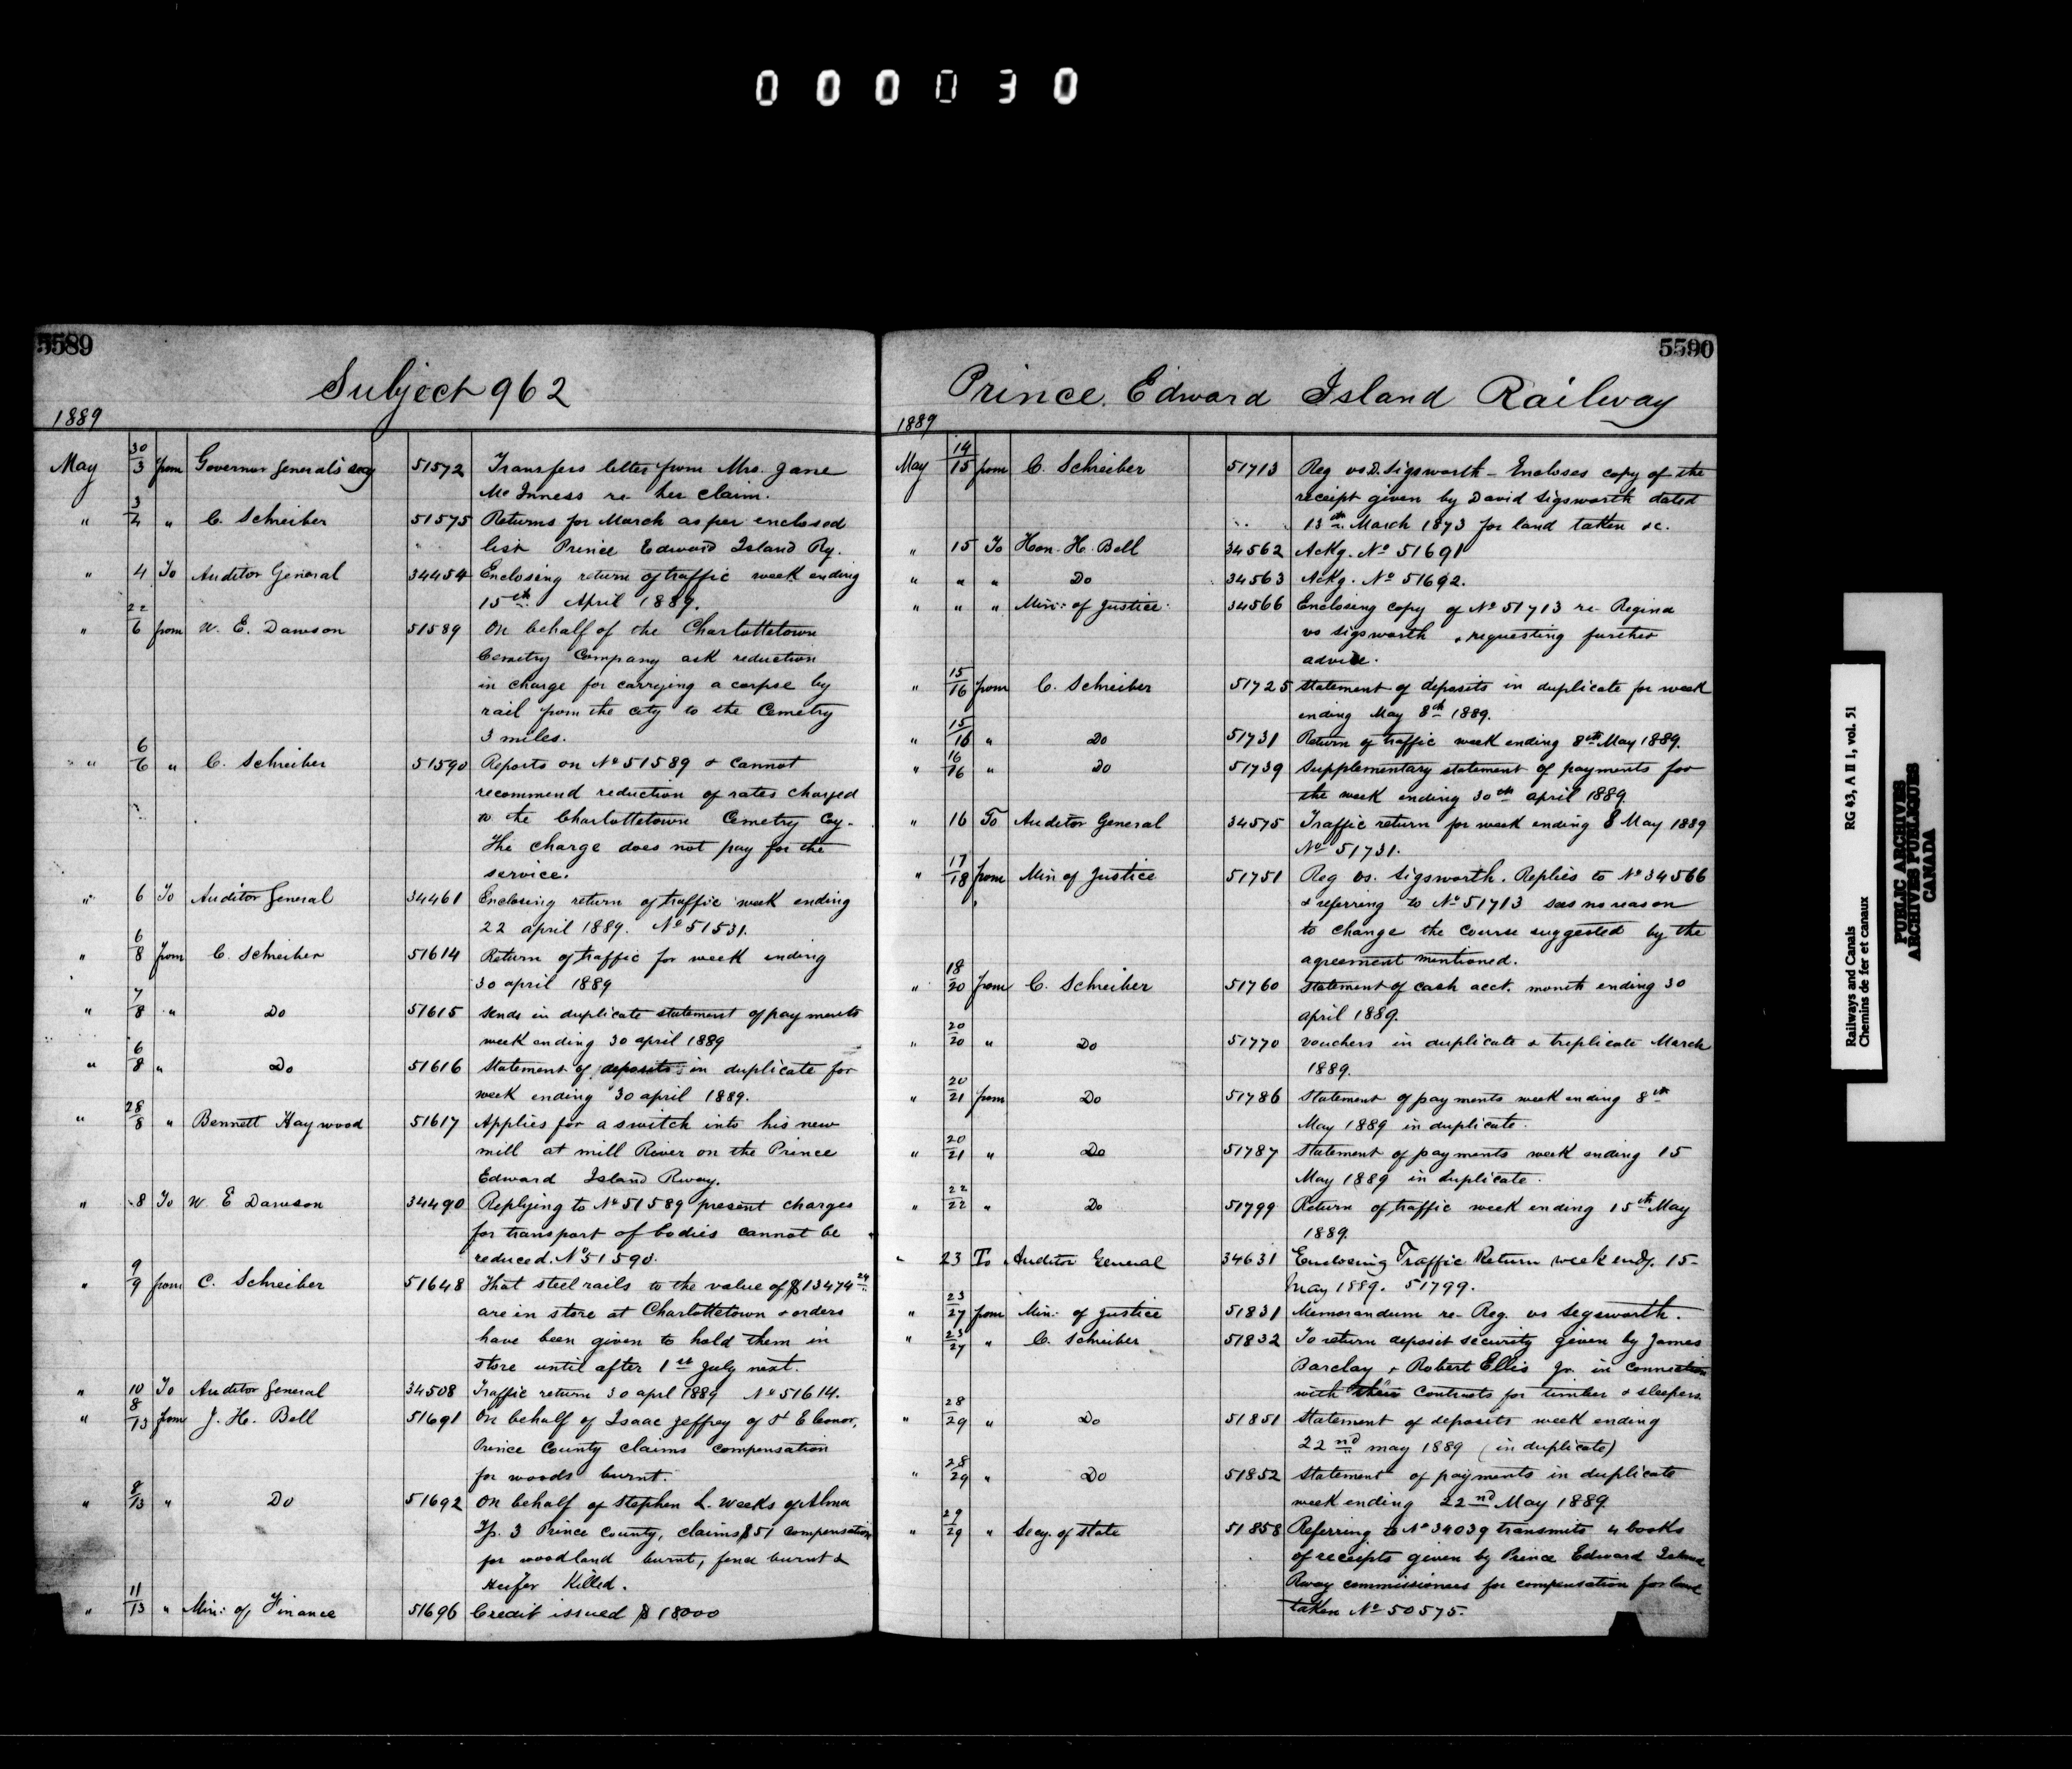 000030
5589
Subject 962
1889
May 30/3 from Governor General's secy 51572 Transfers letter from Mrs. Jane
McInness re her claim.
" 3/4 " C. Schreiber 51575 Returns for March as per enclosed
list Prince Edward Island Ry.
" 4 To Auditor General 34454 Enclosing return of traffic week ending
15th April 1889.
" 22/6 from W. E. Dawson 51589 On behalf of the Charlottetown
Cemetry Company ask reduction
in charge for carrying a corpse by
rail from the city to the Cemetry
3 miles.
" 6/6 " C. Schreiber 51590 Reports on No 51589 & cannot
recommend reduction of rates charged
to the Charlottetown Cemetry Coy.
The charge does not pay for the
service.
" 6 To Auditor General 34461 Enclosing return of traffic week ending
22 april 1889. No 51531.
" 6/8 from C. Schreiber 51614 Return of traffic for week ending
30 april 1889
" 7/8 " Do 51615 Sends in duplicate statement of payments
week ending 30 april 1889
" 6/8 " Do 51616 Statement of deposits in duplicate for
week ending 30 april 1889.
" 28/8 " Bennett Haywood 51617 Applies for a switch into his new
mill at mill River on the Prince
Edward Island Rway.
" 8 To W. E Dawson 34490 Replying to No 51589 present charges
for transport of bodies cannot be
reduced. No 51590.
" 9/9 from C. Schreiber 51648 That steel rails to the value of $13474 24
are in store at Charlottetown & orders
have been given to hold them in
store until after 1st July next.
" 10 To Auditor General 34508 Traffic return 30 aprl 1889 No 51614.
" 8/13 from J. H. Bell 51691 On behalf of Isaac Jeffrey of St Eleonor,
Prince County claims compensation
for woods burnt.
" 8/13 " Do 51692 On behalf of Stephen L. Weeks of Alma
Tp. 3 Prince County, claims $51 compensation
for woodland burnt, fence burnt &
Heifer Killed.
" 11/13 " Min: of Finance 51696 Credit issued $18000
5590
Prince Edward Island Railway
1889
May 14/15 from C. Schreiber 51713 Reg vs D. Sigsworth - Encloses copy of the
receipt given by David Sigsworth dated
13th March 1873 for land taken &c.
" 15 To Hon. H. Bell 34562 Ackg. No 51691
" " " Do 34563 Ackg. No 51692.
" " " Min: of Justice 34566 Enclosing copy of No 51713 re Regina
vs Sigsworth & requesting further
advice.
" 15/16 from C. Schreiber 51725 Statement of deposits in duplicate for week
ending May 8th 1889.
" 15/16 " Do 51731 Return of traffic week ending 8th May 1889.
" 16/16 " Do 51739 Supplementary statement of payments for
the week ending 30th april 1889.
" 16 To Auditor General 34575 Traffic return for week ending 8 May 1889
No 51731.
" 17/18 from Min of Justice 51751 Reg vs. Sigsworth. Replies to No 34566
& referring to No 51713 sees no reason
to change the course suggested by the
agreement mentioned.
" 18/20 from C. Schreiber 51760 Statement of cash acct. month ending 30
april 1889.
" 20/20 " Do 51770 Vouchers in duplicate & triplicate March
1889.
" 20/21 from Do 51786 Statement of payments week ending 8th
May 1889 in duplicate.
" 20/21 " Do 51787 Statement of payments week ending 15
May 1889 in duplicate.
" 22/22 " Do 51799 Return of traffic week ending 15th May
1889.
" 23 To Auditor General 34631 Enclosing Traffic Return week endg. 15
May 1889. 51799.
" 23/27 from Min: of Justice 51831 Memorandum re Reg. vs Segsworth.
" 23/27 " C. Schreiber 51832 To return deposit security given by James
Barclay & Robert Ellis Jr. in connection
with their contracts for timber & sleepers.
" 28/29 " Do 51851 Statement of deposits week ending
22nd may 1889 (in duplicate)
" 28/29 " Do 51852 Statement of payments in duplicate
week ending 22nd May 1889.
" 29/29 " Secy. of State 51858 Referring to No 34039 transmits 4 books
of receipts given by Prince Edward Island
Rway commissioners for compensation for land
taken No 50575.
Railways and Canals RG 43, A II 1, vol. 51
Chemins de fer et canaux
PUBLIC ARCHIVES
ARCHIVES PUBLIQUES
CANADA